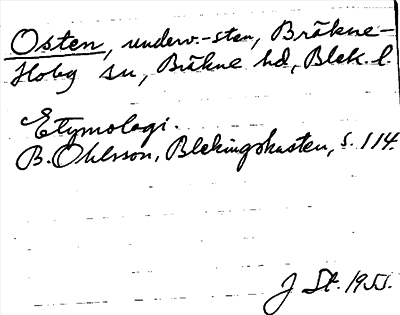 Osten, underv.-sten, Bräkne-
Hoby sn, Bräkne hd, Blek. l.
Etymologi.
B. Ohlsson, Blekingskusten, s. 114.
J St. 1955.